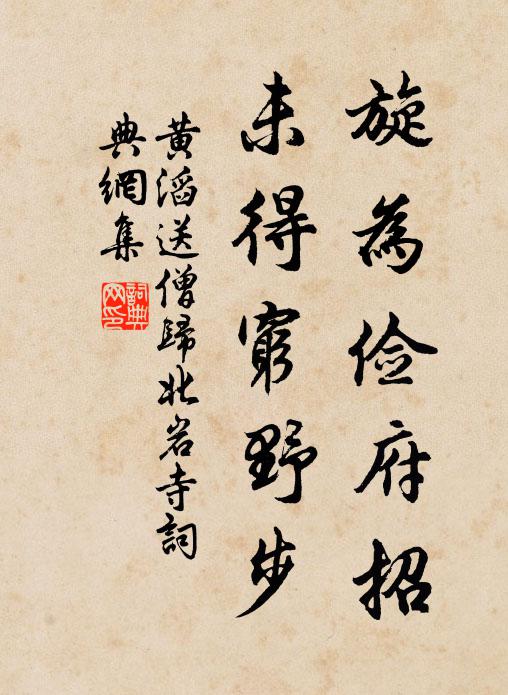 旋為儉府招
未得窮野步
黃滔送僧歸北岩寺詞
典網集
詞典
网印